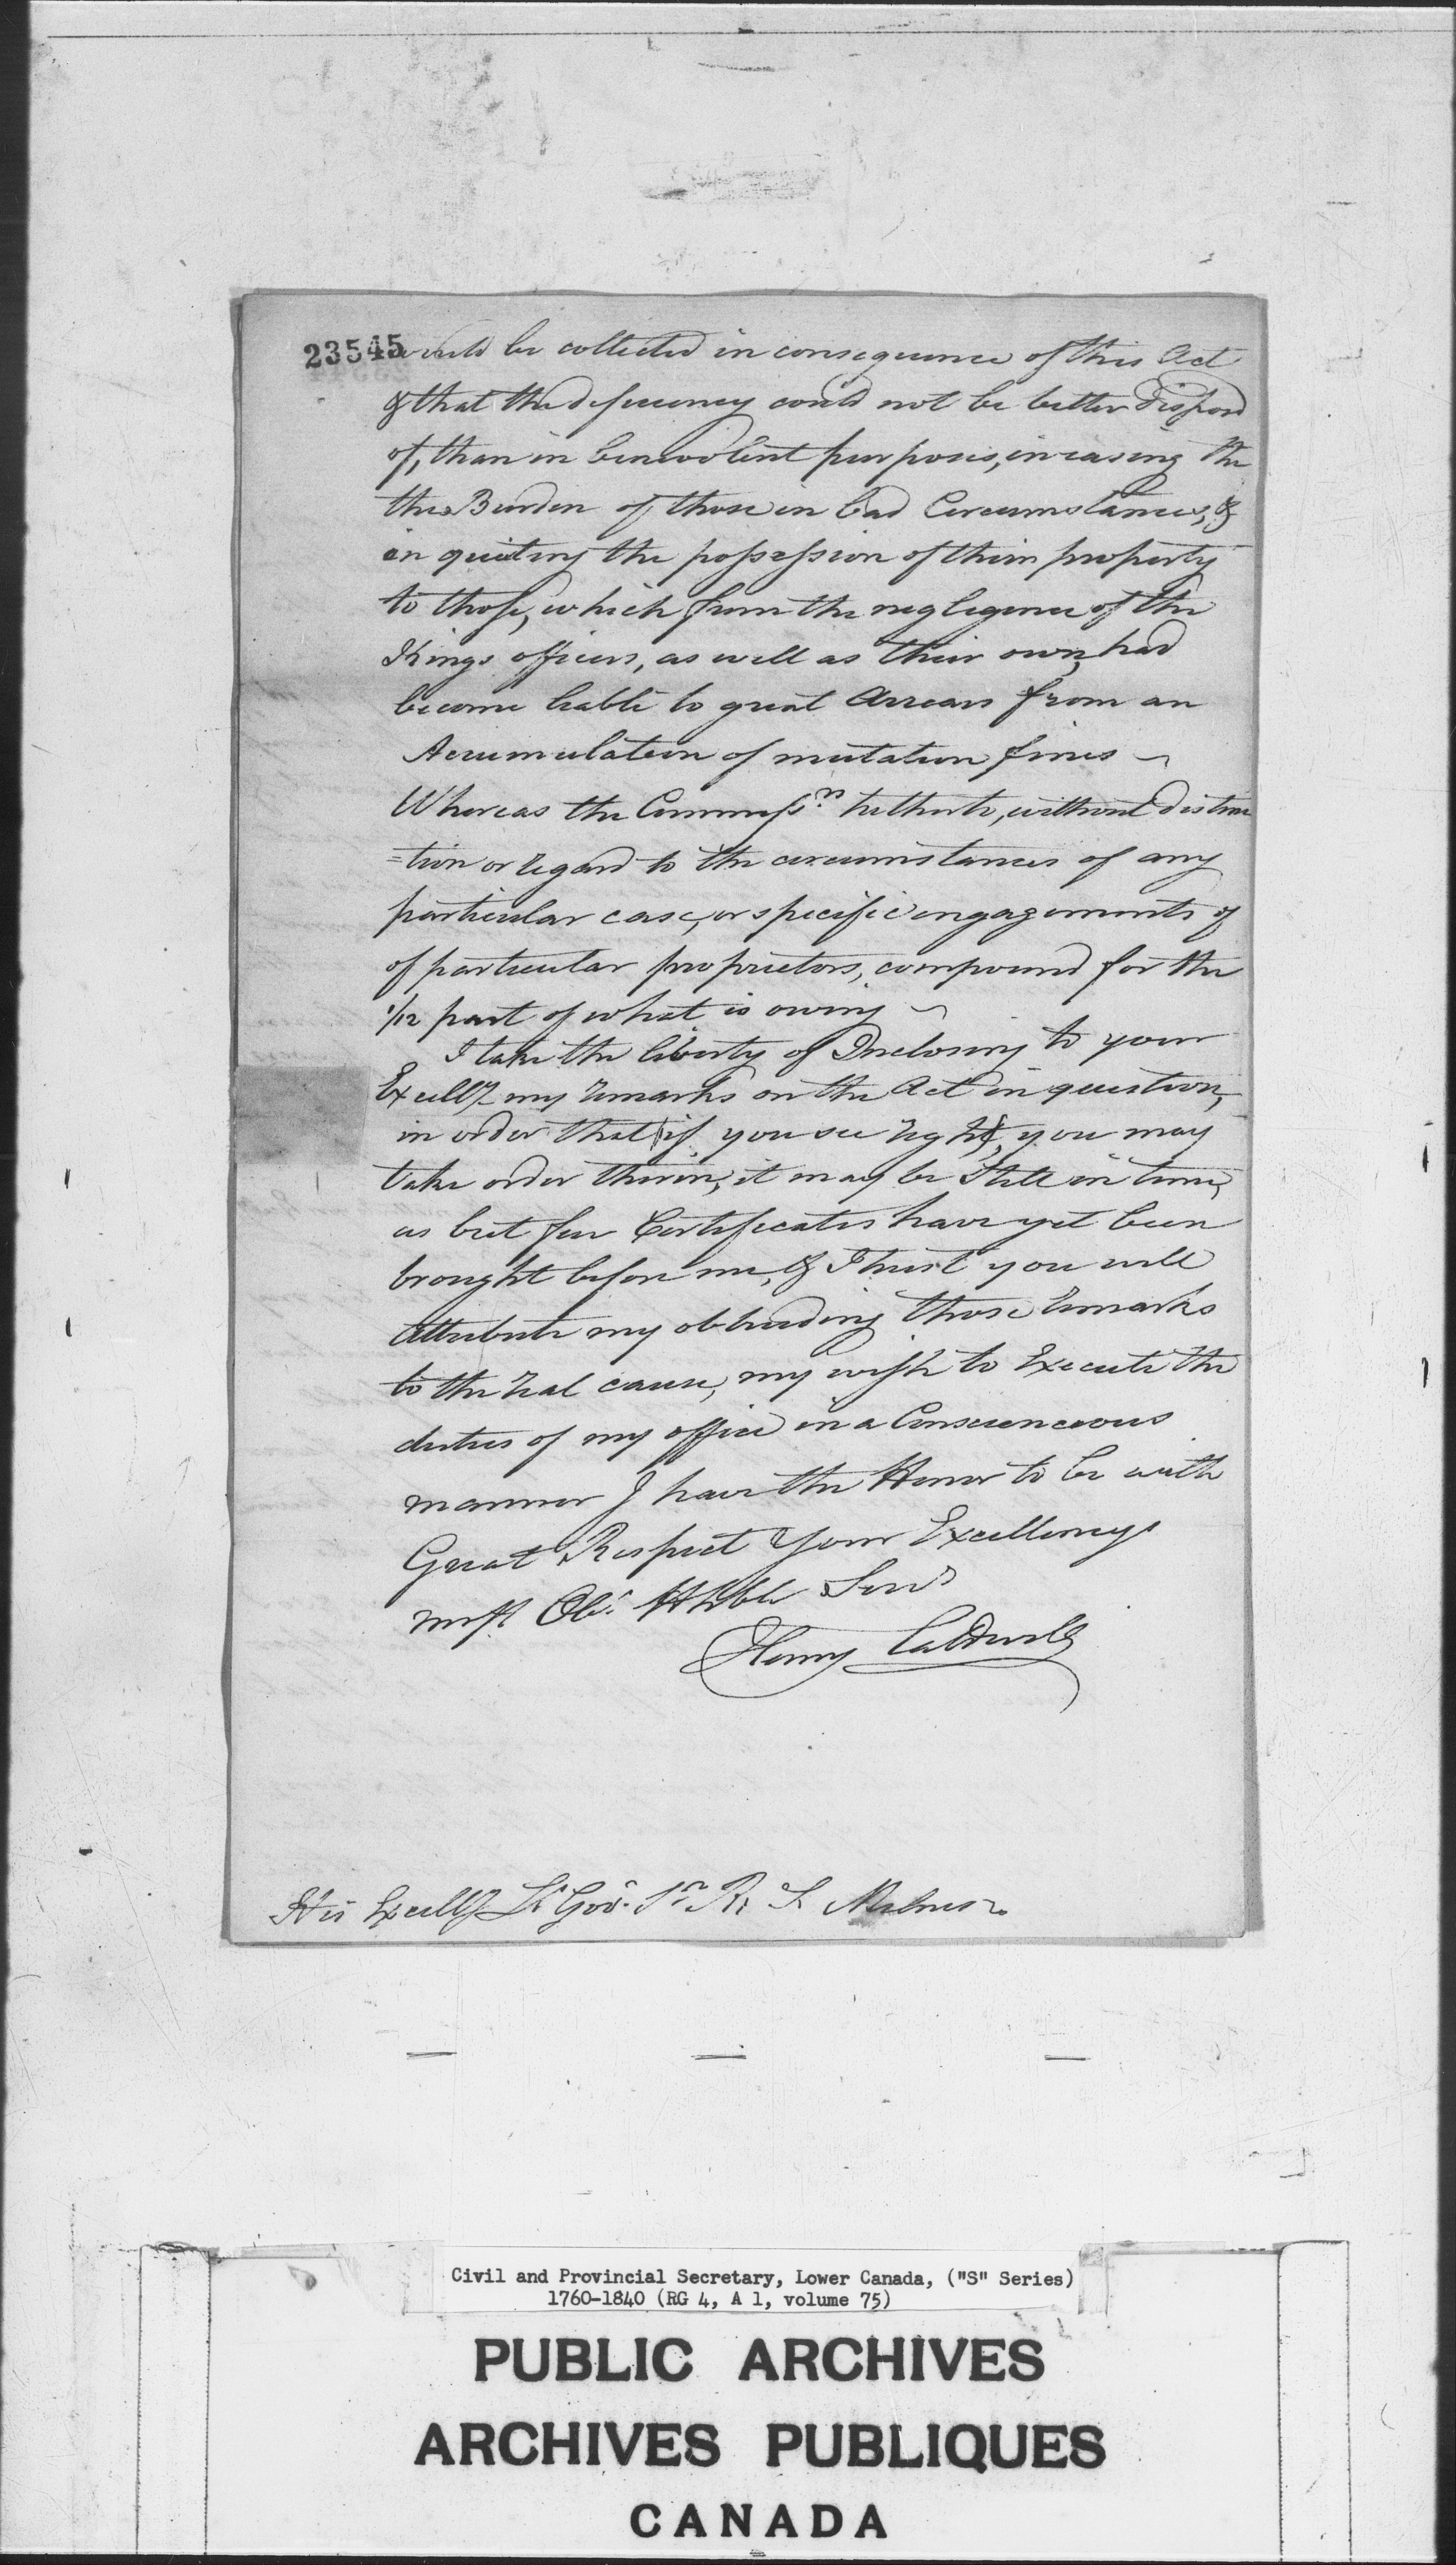 23545
would be collected in consequence of this Act
& that the deficiency could not be better Disposd
of, than in benevolent purposes, in easing the
the Burden of those in bad Circumstances, &
in quieting the possession of their property
to those, which from the negligence of the
Kings officers, as well as their own, had
become liable to great Arrears from an
Accumulation of mutation fines ~
Whereas the Commissrs hitherto, without distinc
=tion or regard to the circumstances of any
particular case, or specific engagements of
of particular proprietors, compound for the
1/12 part of what is owing ~
I take the liberty of Inclosing to your
Excelly my remarks on the Act in question,
in order that if you see right, you may
take order therein, it may be still in time,
as but few Certificates have yet been
brought before me, & I trust you will
Attribute my obtruding those remarks
to the real cause, my wish to Execute the
duties of my office in a Consciencious
manner I have the Honor to be with
Great Respect Your Excellencys
most Obt Hhble Servt
Henry Caldwell
His Excelly Lt Govr Sr R. S. Milnes
Civil and Provincial Secretary, Lower Canada, ("S" Series)
1760-1840 (RG 4, A 1, volume 75)
PUBLIC ARCHIVES
ARCHIVES PUBLIQUES
CANADA